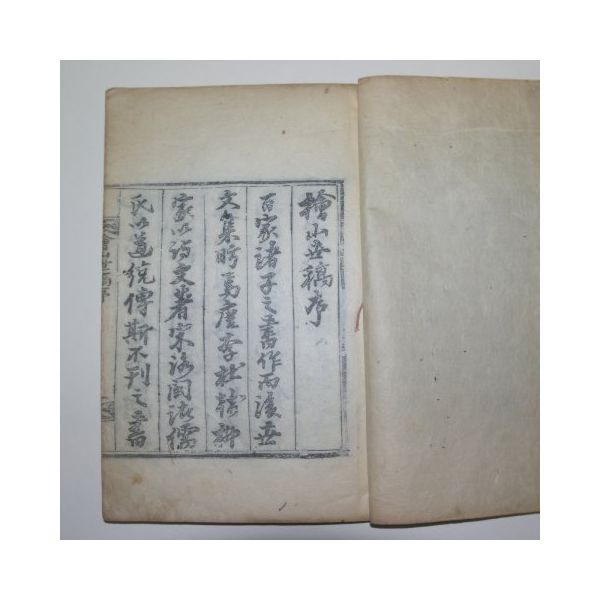 檜山世稿序
百家諸子之書作而後世
文集昉焉唐李杜韓柳
家以詩文著宋濂閩諸儒
氏以道統傳斯不刊之書
檜山世稿序